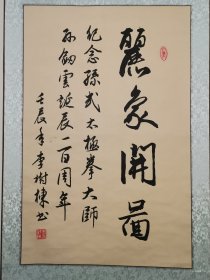 麗象開圖
紀念孫式太極拳大師
孫劍雲誕辰一百周年
壬辰年李樹棟书